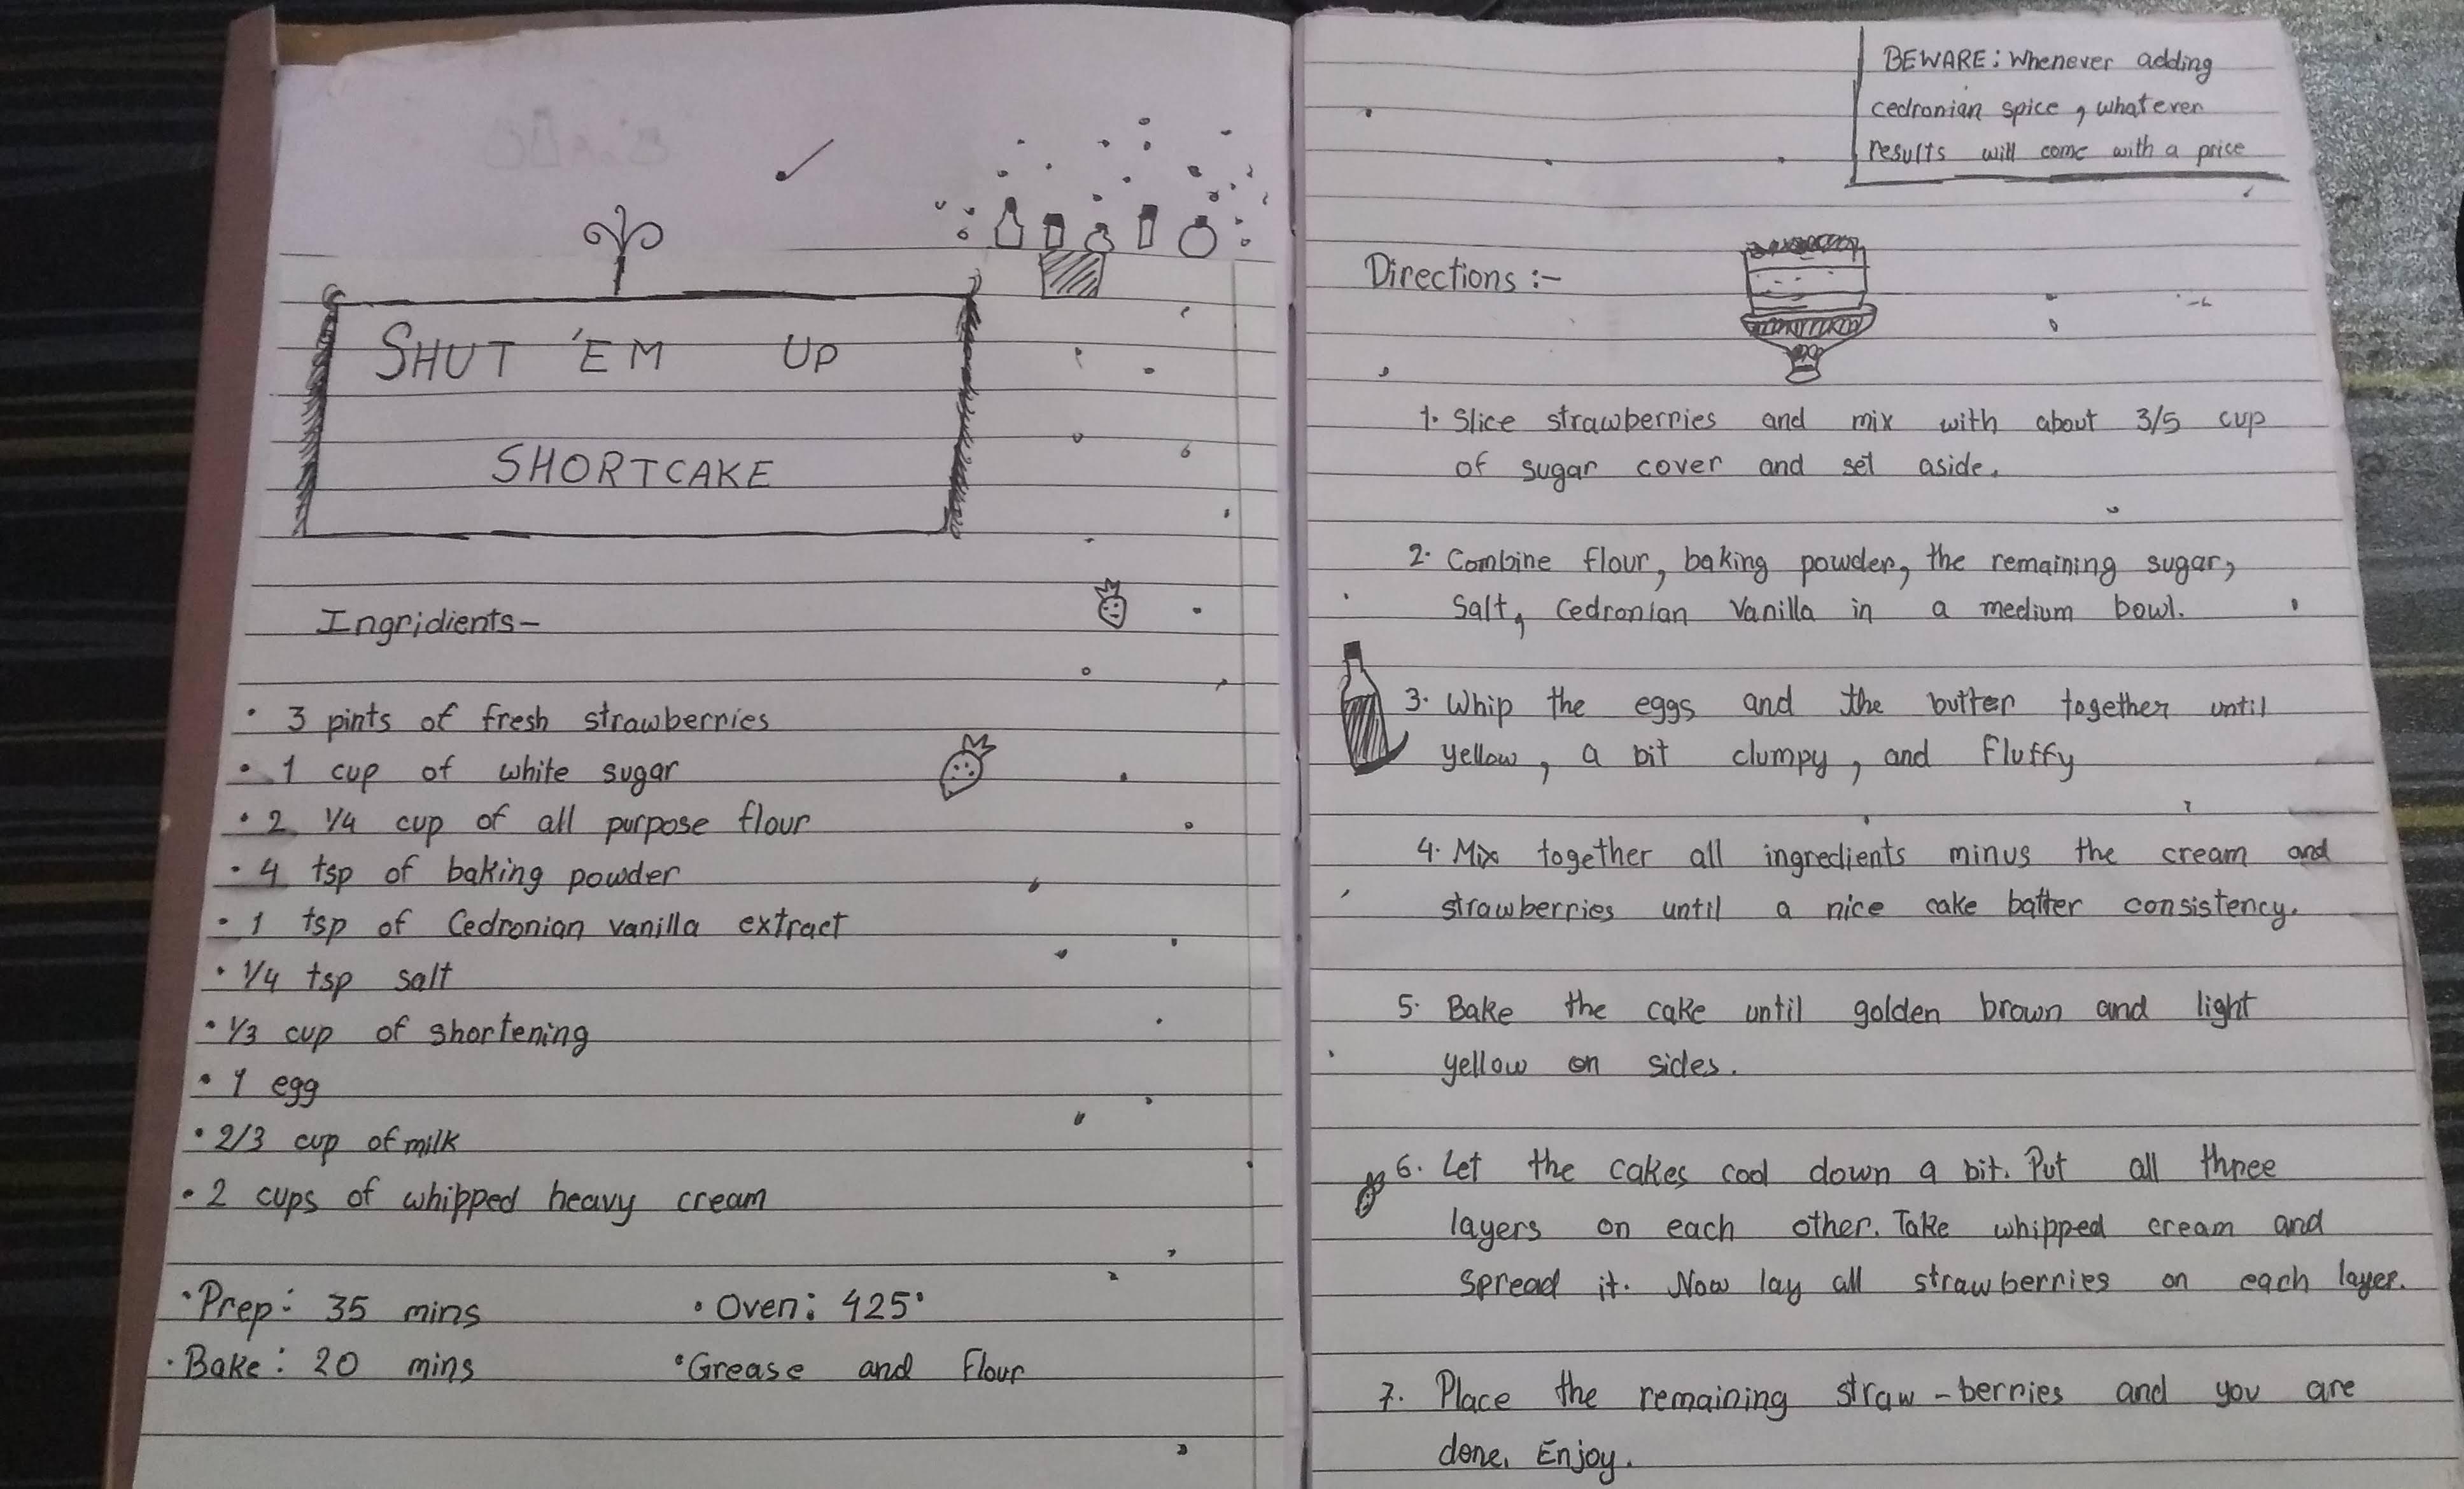 SHUT 'EM UP
SHORTCAKE
Ingridients-
• 3 pints of fresh strawberries
• 1 cup of white sugar
• 2 1/4 cup of all purpose flour
• 4 tsp of baking powder
• 1 tsp of Cedronian vanilla extract
• 1/4 tsp salt
• 1/3 cup of shortening
• 1 egg
• 2/3 cup of milk
• 2 cups of whipped heavy cream
• Prep: 35 mins • Oven: 425°
• Bake: 20 mins • Grease and Flour
BEWARE: Whenever adding
cedronian spice, whatever
results will come with a price
Directions :-
1. Slice strawberries and mix with about 3/5 cup
of sugar cover and set aside.
2. Combine flour, baking powder, the remaining sugar,
Salt, Cedronian Vanilla in a medium bowl.
3. Whip the eggs and the butter together until
yellow, a bit clumpy, and Fluffy
4. Mix together all ingredients minus the cream and
strawberries until a nice cake batter consistency.
5. Bake the cake until golden brown and light
yellow on sides.
6. Let the cakes cool down a bit. Put all three
layers on each other. Take whipped cream and
spread it. Now lay all strawberries on each layer.
7. Place the remaining straw-berries and you are
done. Enjoy.